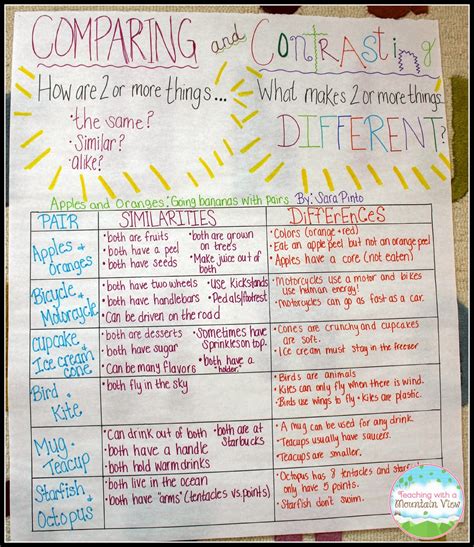 COMPARING and CONTRASTING
How are 2 or more things...
• the same?
• Similar?
• alike?
What makes 2 or more things
DIFFERENT?
Apples and Oranges: Going bananas with pairs By: Sara Pinto
PAIR
SIMILARITIES
DIFFERENCES
Apples + Oranges
• both are fruits
• both have a peel
• both have seeds
• both are grown on trees
• Make juice out of both
• Colors (orange + red)
• Eat an apple peel but not an orange peel
• Apples have a core (not eaten)
Bicycle + Motorcycle
• both have two wheels
• both have handlebars
• Can be driven on the road
• Use Kickstands
• Pedals/footrest
• Motorcycles use a motor and bikes
use human energy!
• Motorcycles can go as fast as a car.
Cupcake + Ice cream cone
• both are desserts
• both have sugar
• Can be many flavors
• Sometimes have
sprinkles on top.
• both have a "holder."
• Cones are crunchy and cupcakes
are soft.
• Ice cream must stay in the freezer
Bird + Kite
• both fly in the sky
• Birds are animals
• Kites can only fly when there is wind.
• Birds use wings to fly • kites are plastic.
Mug + Teacup
• Can drink out of both
• both have a handle
• both hold warm drinks
• both are at
Starbucks
• A mug can be used for any drink.
• Teacups usually have saucers.
• Teacups are smaller.
Starfish + Octopus
• both live in the ocean
• both have "arms" (tentacles vs. points)
• Octopus has 8 tentacles and starfish
only have 5 points.
• Starfish don't swim.
Teaching with a
Mountain View